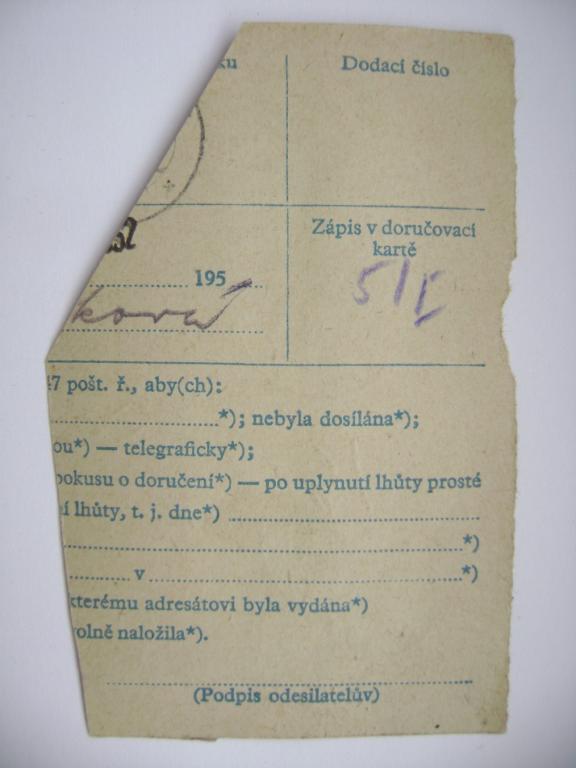 ku
Dodací číslo
Zápis v doručovací
kartě
195
5/I
ková
7 pošt. ř., aby(ch):
*); nebyla dosílána*);
ou*) — telegraficky*);
pokusu o doručení*) — po uplynutí lhůty prosté
í lhůty, t. j. dne*)
*)
v *)
kterému adresátovi byla vydána*)
volně naložila*).
(Podpis odesilatelův)